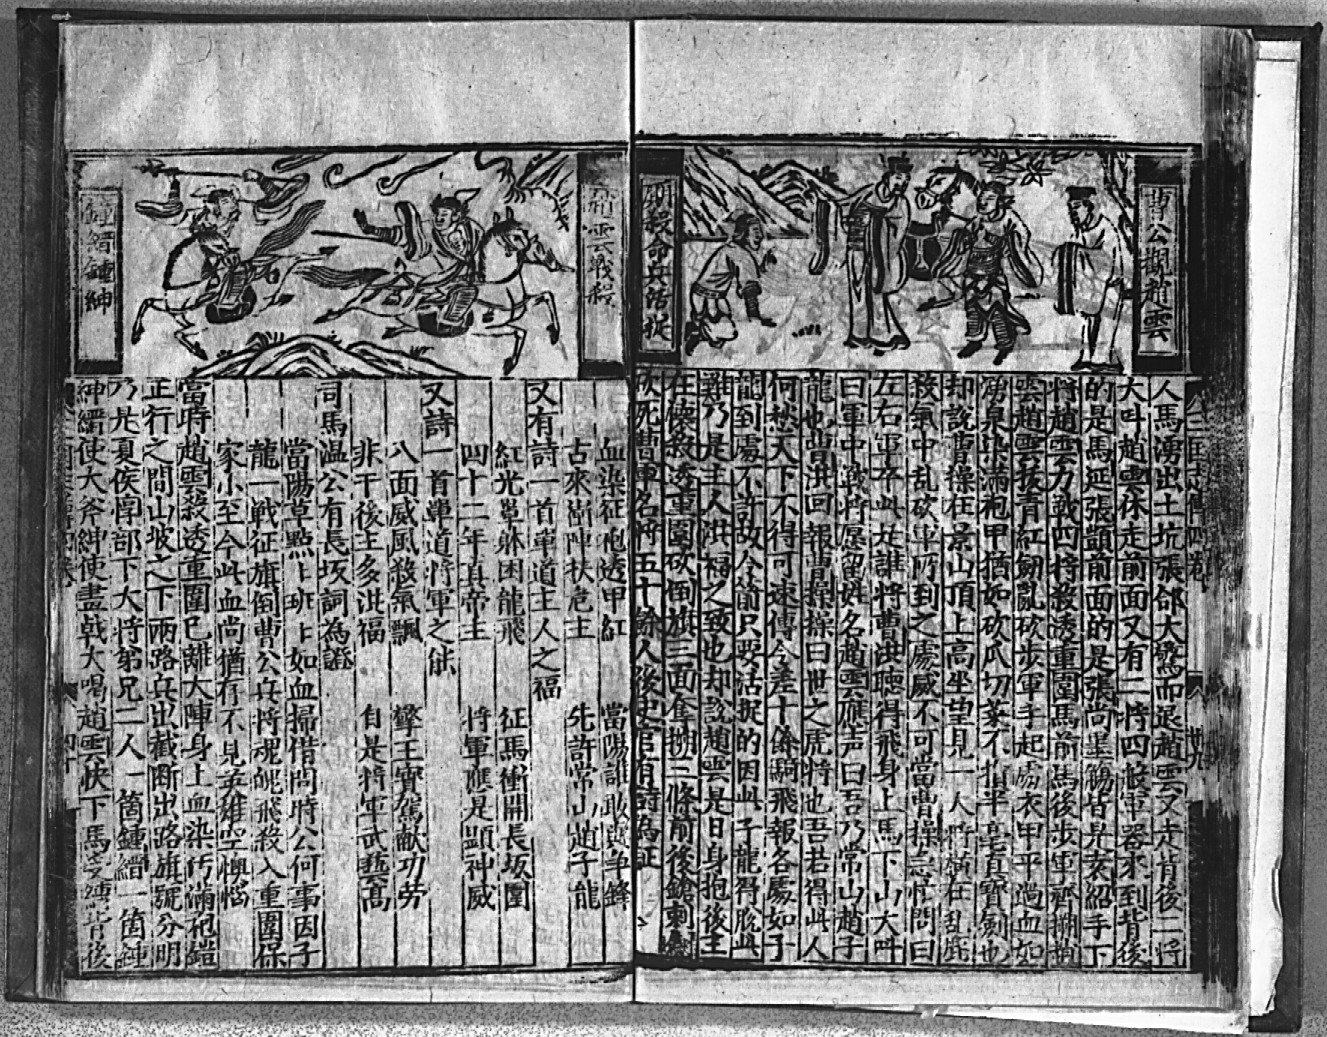 曹公觀趙雲
人馬湧出土坑張郃大驚而退趙雲又走背後二將
大叫趙雲休走前面又有二將四般軍器來到背後
的是馬延張顗前面的是張尚墨觴皆是袁紹手下
將趙雲力戰四將殺透重圍馬前馬後步軍齊擁趙
雲趙雲拔青紅劒亂砍步軍手起處衣甲平過血如
湧泉染滿袍甲猶如砍瓜切菜不損半毫真寶劍也
却說曹操在景山頂上高坐望見一人將橫在乱
殺氣中乱砍軍所到之處威不可當曹操急忙問曰
左右軍卒此是誰將曹洪聽得飛身上馬下山大叫
曰軍中戰將愿留姓名趙雲應声曰吾乃常山趙子
龍也曹洪回報曹操操曰世之虎將也吾若得此人
何愁天下不得可速傳令差十餘騎飛報各處如子
龍到處不許放令箭只要活捉的因此子龍得脫此
難乃是主人洪福之致也却說趙雲是日身抱後主
在懷殺透重圍砍倒旗三面奪搠二條前後鎗刺
砍死曹軍名將五十餘人後史官有詩為証
趙雲戰殺
鍾縉鍾紳
血染征袍透甲紅 當陽誰敢與争鋒
古來衝陣扶危主 先許常山趙子龍
又有詩一首單道主人之福
紅光罩躰困龍飛 征馬衝開長坂圍
四十二年真帝主 將軍應是顕神威
又詩一首單道將軍之能
八面威風殺氣飄 擎王寳駕獻功勞
非干後主多洪福 自是將軍武藝高
司馬温公有長坂詞為證
當陽草點上班上如血掃借問時公何事因子
龍一戰征旗倒曹公兵將魂魄飛殺入重圍保
家小至今此血尚猶存不見英雄空懊惱
當時趙雲殺透重圍已離大陣身上血染污滿袍鎧
正行之間山坡之下兩路兵出截断出路旗號分明
乃是夏侯惇部下大將弟兄二人一箇鍾縉一箇鍾
紳縉使大斧紳使畫戟大喝趙雲快下馬受縛背後